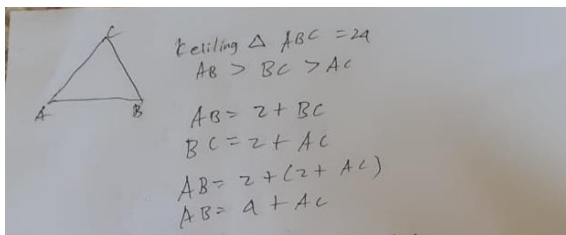 C
A
B
keliling △ ABC = 24
AB > BC > AC
AB = 2 + BC
BC = 2 + AC
AB = 2 + (2 + AC)
AB = 4 + AC